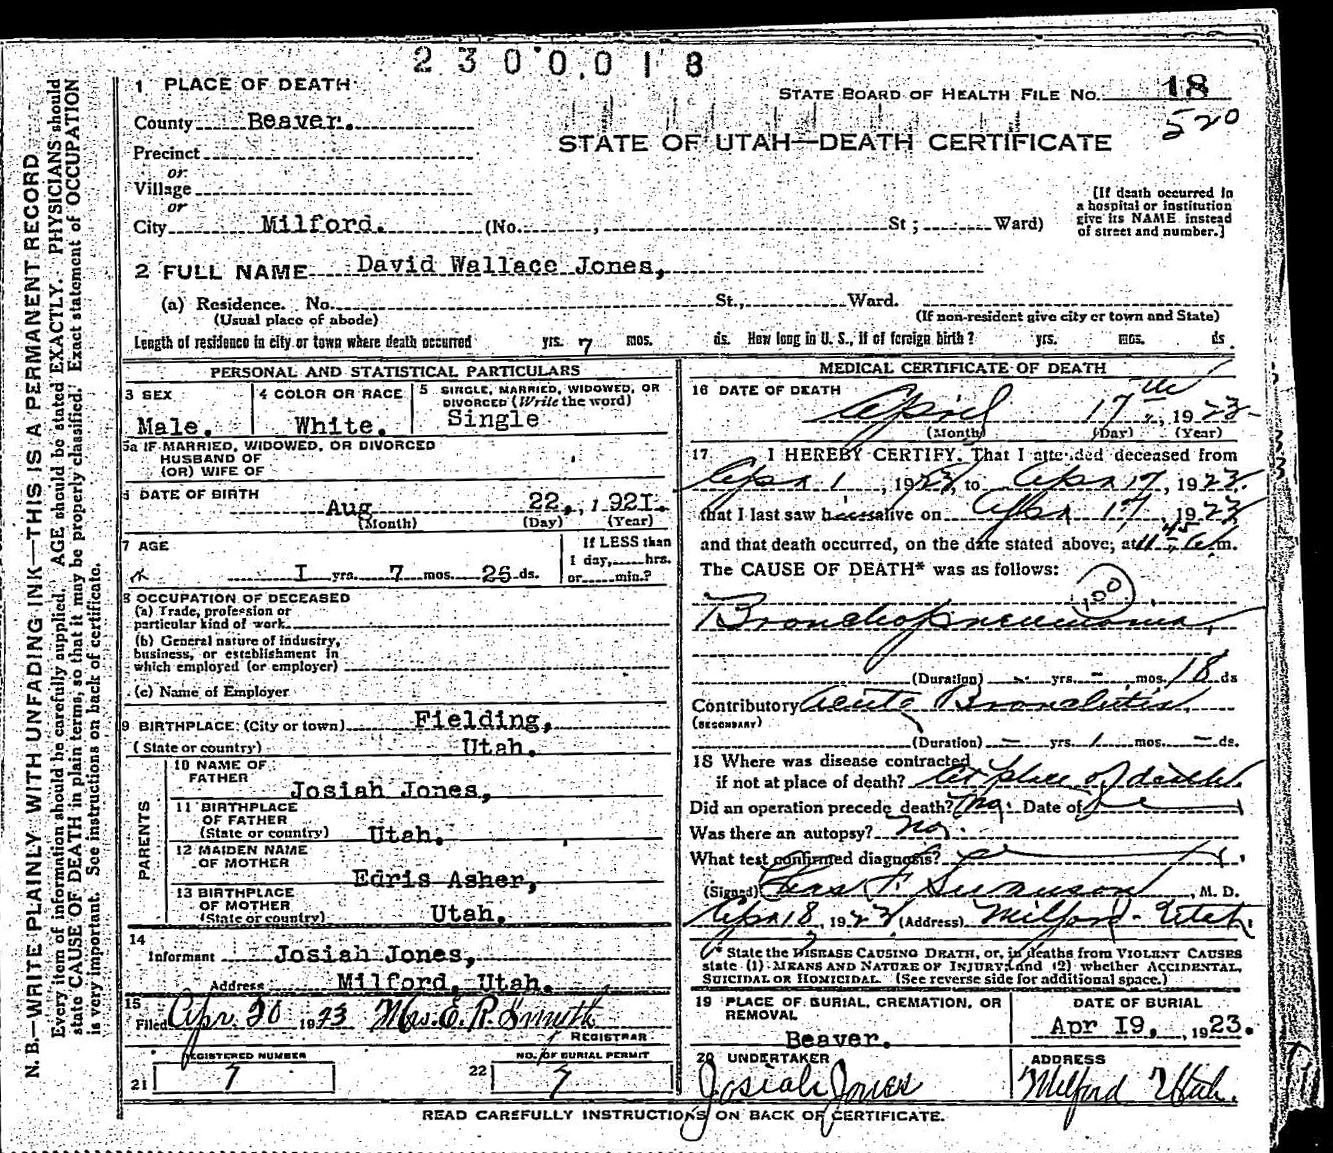 2300018
1 PLACE OF DEATH
STATE BOARD OF HEALTH FILE NO. 18
520
County Beaver.
STATE OF UTAH—DEATH CERTIFICATE
Precinct
or
Village
or
City Milford. (No. , St ; Ward)
[If death occurred in
a hospital or institution
give its NAME instead
of street and number.]
2 FULL NAME David Wallace Jones,
(a) Residence. No. St., Ward.
(Usual place of abode) (If non-resident give city or town and State)
Length of residence in city or town where death occurred yrs. 7 mos. ds. How long in U. S., if of foreign birth? yrs. mos. ds.
PERSONAL AND STATISTICAL PARTICULARS
3 SEX Male.
4 COLOR OR RACE White.
5 SINGLE, MARRIED, WIDOWED, OR
DIVORCED (Write the word)
Single
5a IF MARRIED, WIDOWED, OR DIVORCED
HUSBAND OF
(OR) WIFE OF
6 DATE OF BIRTH
Aug 22., 1921.
(Month) (Day) (Year)
7 AGE
I yrs. 7 mos. 26 ds.
If LESS than
1 day, hrs.
or min.?
8 OCCUPATION OF DECEASED
(a) Trade, profession or
particular kind of work
(b) General nature of industry,
business, or establishment in
which employed (or employer)
(c) Name of Employer
9 BIRTHPLACE (City or town) Fielding,
(State or country) Utah.
PARENTS
10 NAME OF
FATHER
Josiah Jones,
11 BIRTHPLACE
OF FATHER
(State or country) Utah.
12 MAIDEN NAME
OF MOTHER
Edris Asher,
13 BIRTHPLACE
OF MOTHER
(State or country) Utah.
14
Informant Josiah Jones,
Address Milford, Utah.
15
Filed Apr. 20 1923 Mrs. E. R. Smith
REGISTRAR
REGISTERED NUMBER
21 7
NO. OF BURIAL PERMIT
22 7
MEDICAL CERTIFICATE OF DEATH
16 DATE OF DEATH
April 17th, 1923
(Month) (Day) (Year)
17 I HEREBY CERTIFY, That I attended deceased from
Apr 1, 1923, to Apr 17, 1923.
that I last saw him alive on Apr 17, 1923
and that death occurred, on the date stated above, at 11 45 a.m.
The CAUSE OF DEATH* was as follows:
100
Bronchopneumonia,
(Duration) - yrs. - mos. 18 ds
Contributory Acute Bronchitis
(SECONDARY)
(Duration) - yrs. 1 mos. - ds.
18 Where was disease contracted
if not at place of death? At place of death
Did an operation precede death? No. Date of
Was there an autopsy? No.
What test confirmed diagnosis?
(Signed) Chas F. Swanson, M. D.
Apr 18, 1923 (Address) Milford - Utah.
* State the DISEASE CAUSING DEATH, or, in deaths from VIOLENT CAUSES
state (1) MEANS AND NATURE OF INJURY; and (2) whether ACCIDENTAL,
SUICIDAL OR HOMICIDAL. (See reverse side for additional space.)
19 PLACE OF BURIAL, CREMATION, OR
REMOVAL
Beaver.
DATE OF BURIAL
Apr I9, 1923.
20 UNDERTAKER
Josiah Jones
ADDRESS
Milford Utah.
READ CAREFULLY INSTRUCTIONS ON BACK OF CERTIFICATE.
N. B.—WRITE PLAINLY WITH UNFADING INK—THIS IS A PERMANENT RECORD
Every item of information should be carefully supplied. AGE should be stated EXACTLY. PHYSICIANS should
state CAUSE OF DEATH in plain terms, so that it may be properly classified. Exact statement of OCCUPATION
is very important. See instructions on back of certificate.